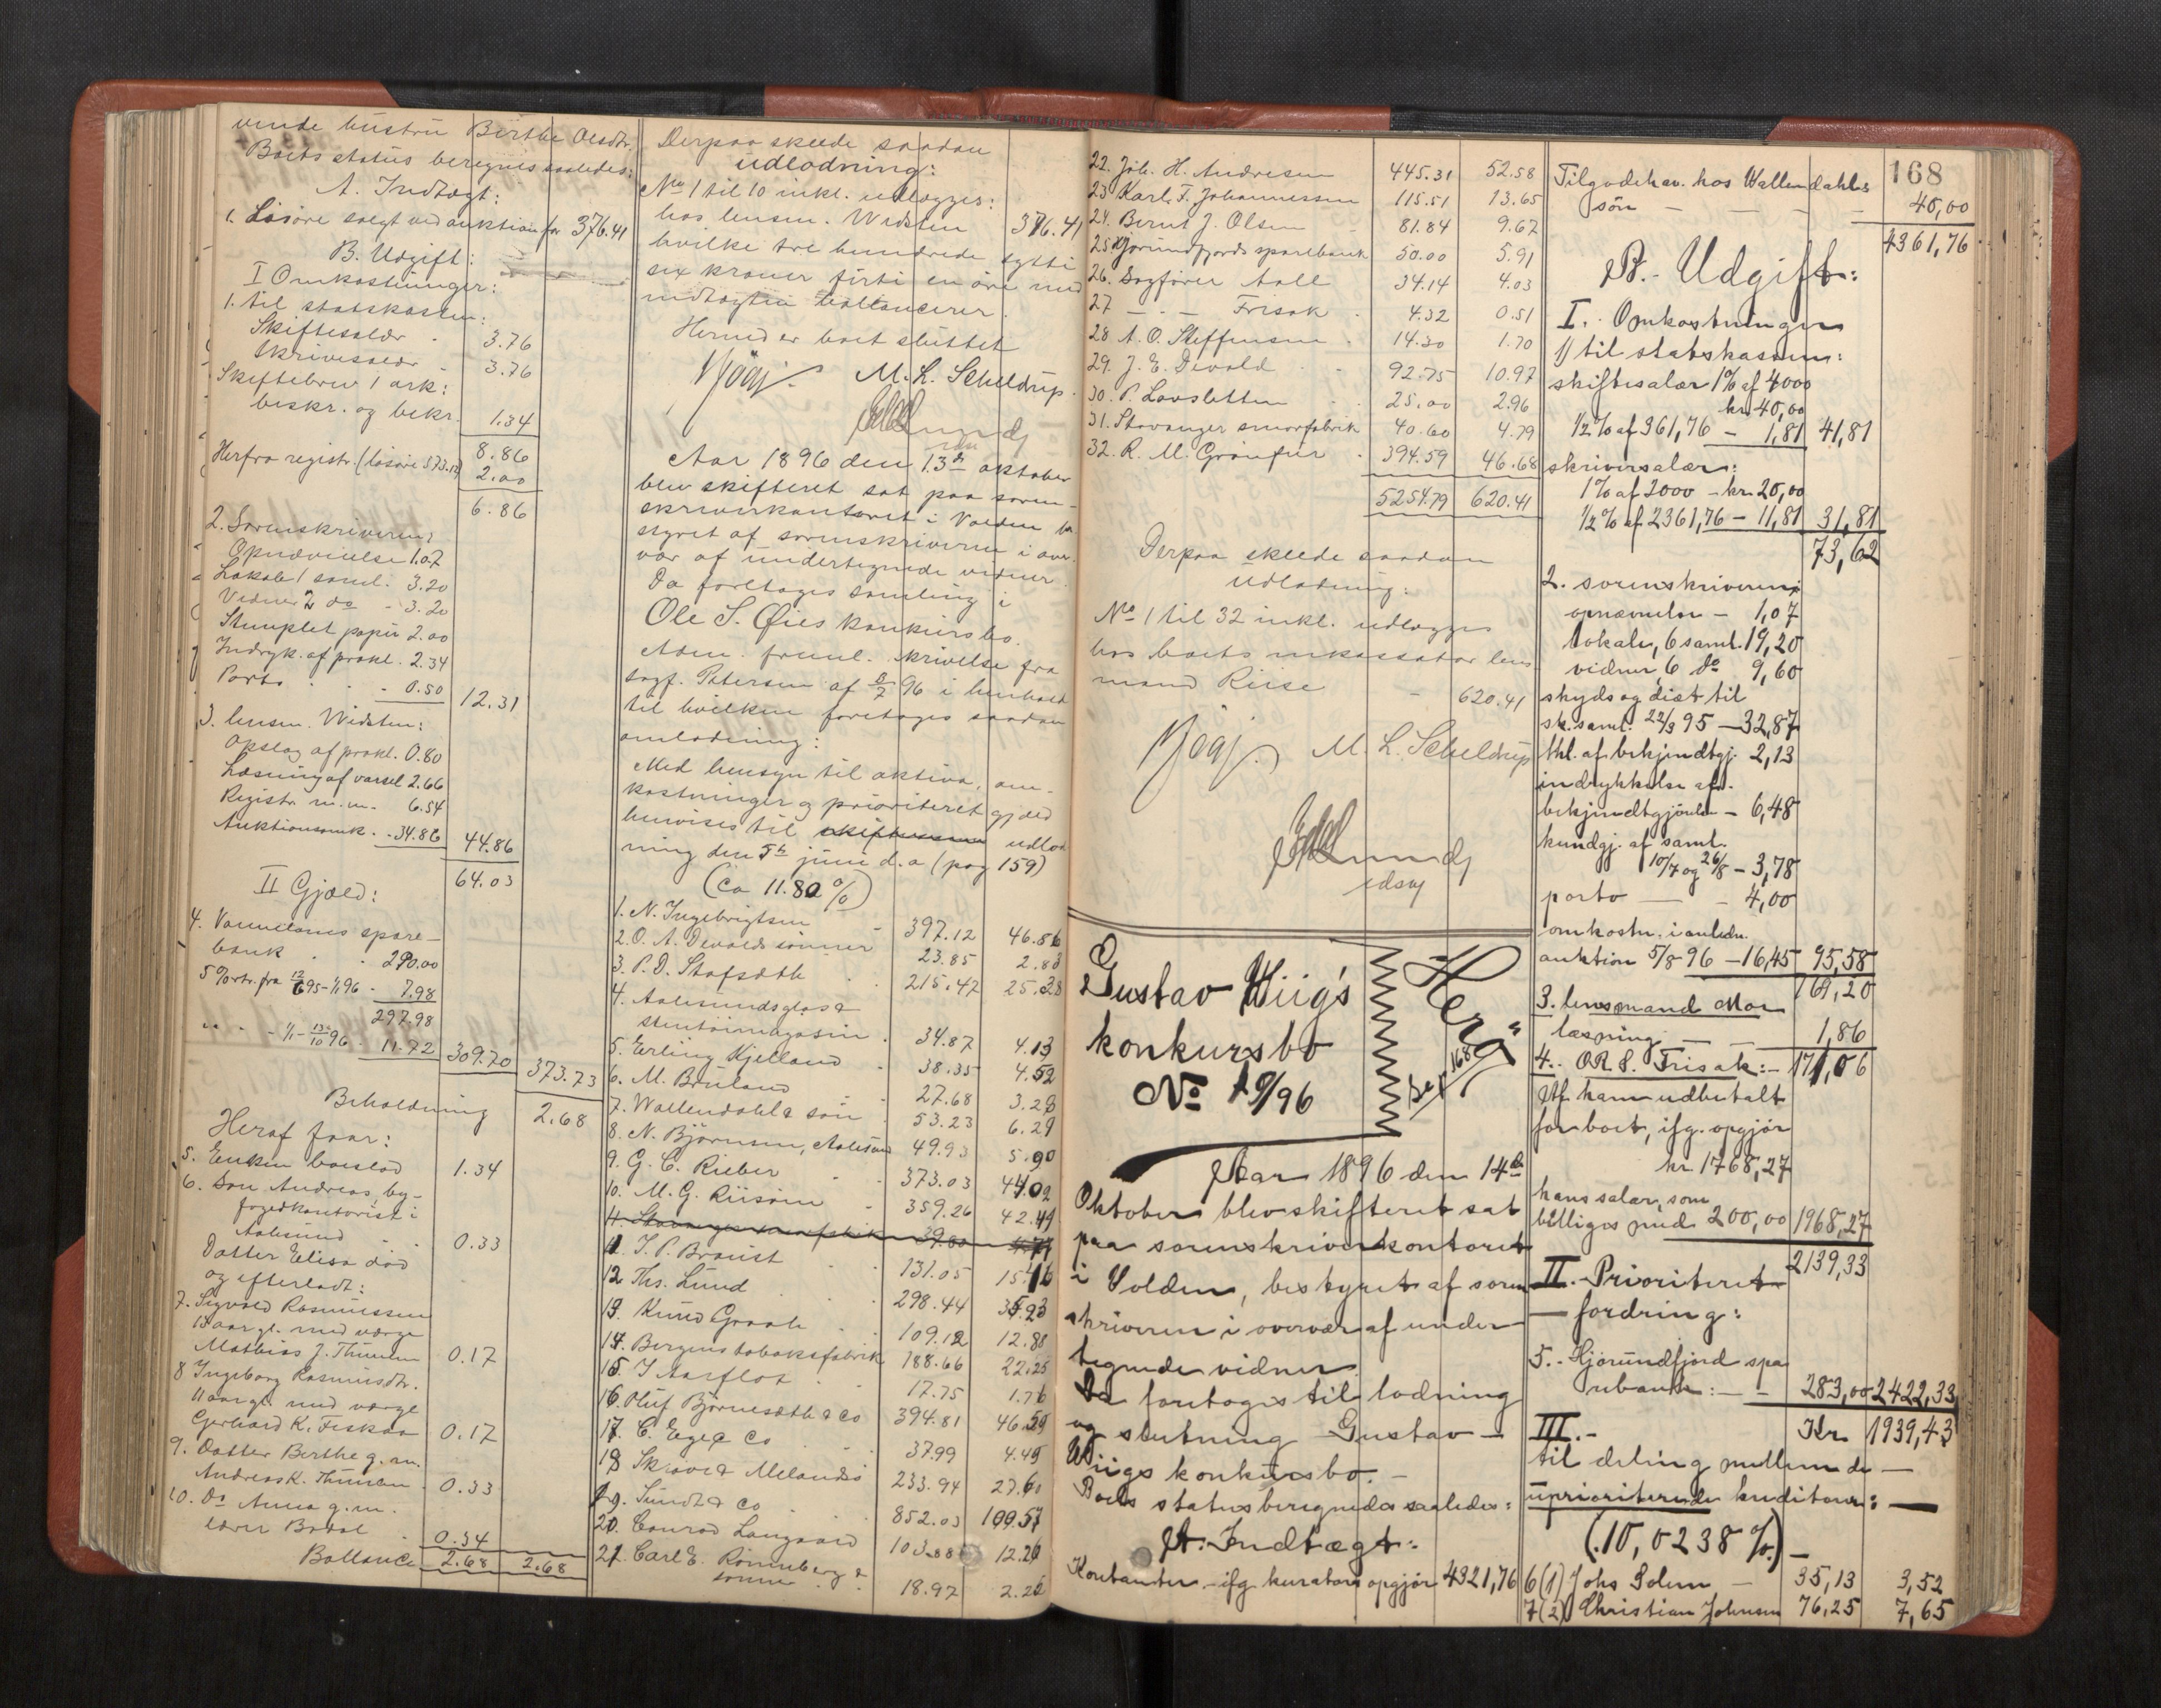 vende hustru Berthe Olesdtr.
Boets status beregnes saaledes:
A. Indtægt:
1. Løsøre solgt ved auktion for 376.41
B. Udgift:
I Omkostninger:
1. til statskassen:
Skiftesalær - 3.76
Skriversalær - 3.76
Skiftebrev 1 ark:
beskr. og bekr. 1.34
8.86
Herfra registr. (løsøre 573.12) 2.00
6.86
2. Sorenskriveren:
Opnævnelse 1.07
Lokale 1 saml. 3.20
Vidner 2 do - 3.20
Stemplet papir 2.00
Indryk. af prokl. 2.34
Porto - 0.50 12.31
3. lensm. Widsten:
Opslag af prokl. 0.80
Læsning af varsel 2.66
Registr. m.m. 6.54
Auktionsomk. - 34.86 44.86
64.03
II Gjæld:
4. Vannelvens spare-
bank - 290.00
5 % rtr. fra 12/6 95 - 1/1 96 - 7.98
297.98
" " - 1/1 - 13/10 96 - 11.72 309.70
373.73
Beholdning 2.68
Heraf faar:
5. Enken boeslod 1.34
6. Søn Andreas, by-
fogedkontorist i
Aalesund 0.33
Datter Elisa død
og efterladt:
7. Sigvald Rasmussen
13 aar gl. med værge
Mathias J. Thunem 0.17
8 Ingeborg Rasmusdtr.
11 aar gl. med værge
Gerhard K. Fiskaa 0.17
9. Datter Berthe g. m.
Andreas K. Thunem 0.33
10. Do Anna g. m.
lærer Bodal 0.34
Ballance 2.68 2.68
Derpaa skeede saadan
udlodning:
No 1 til 10 inkl. udlægges:
hos lensm. Widsten 376.41
hvilke tre hundrede sytti
sex kroner firti en øre med
indtægten ballancerer.
Hermed er boet sluttet
M. L. Scheldrup.
Aar 1896 den 13de oktober
blev skifteret sat paa soren-
skriverkontoret i Volden be
styret af sorenskriveren i over
vær af undertegnede vidner.
Da foretoges samling i
Ole S. Øies konkursbo.
Adm. freml. skrivelse fra
sagf. Petersen af 8/7 96 i henhold
til hvilken foretoges saadan
omlodning:
Med hensyn til aktiva, om-
kostninger og prioriteret gjæld
henvises til udlod
ning den 5te juni d. a (pag 159)
(Ca 11.80 %)
1. N. Ingebrigtsen - 397.12 46.86
2. O. A. Devolds sønner 23.85 2.83
3. P. D. Stafsæth 215.42 25.28
4. Aalesunds glas &
stentøimagasin 34.87 4.13
5. Erling Kjelland 38.35 4.52
6. M. Bruland 27.68 3.28
7. Wallendahl & søn 53.23 6.29
8. N. Bjørnsen, Aalesund 49.93 5.90
9. G. C. Rieber 373.03 44.02
10. M. G. Riisøen 359.26 42.49
11. Stavanger smørfabrik 39.60 4.71
11. J. P. Broust 131.05 15.46
12 Ths. Lund 298.44 35.23
13. Knud Graah 109.12 12.88
14. Bergens tobaksfabrik 188.66 22.25
15. J Aarflot 17.75 1.76
16. Oluf Bjørnesæth & Co 394.81 46.59
17. C. Ege & Co 37.99 4.49
18 Skaare & Melandsø 233.94 27.60
19. Sundt & Co 852.03 100.57
20. Conrad Langaard 103.88 12.26
21. Carl E. Rønneberg &
sønner 18.97 2.26
22. Joh. H. Andresen 445.31 52.58
23 Karl F. Johannessen 115.51 13.65
24. Bernt J. Olsen - 81.84 9.67
25 Hjørundfjords sparebank 50.00 5.91
26. Sagfører Aall 34.14 4.03
27 - " - Frisak 4.32 0.51
28 A. O. Steffensen 14.30 1.70
29. J. E. Devold 92.75 10.97
30. P. Lavsletten 25.00 2.96
31. Stavanger smørfabrik 40.60 4.79
32. R. M. Grønfur 394.59 46.68
5254.79 620.41
Derpaa skeede saadan
Udlodning:
No 1 til 32 inkl. udlægges
hos boets inkassator lens
mand Riise - 620.41
M. L. Scheldrup
Gustav Wiig's
konkursbo
No 10/96
Aar 1896 den 14de
Oktober blev skifteret sat
paa sorenskriverkontoret
i Volden, bestyret af soren
skriveren i overvær af under
tegnede vidner.
Da foretoges til lodning
og slutning Gustav -
Wiigs konkursbo. -
Boets status beregnedes saaledes:
A. Indtægt:
Kontanter - ifg. kurators opgjør 4321,76
168
Tilgodehav. hos Wallendahl &
søn - - - - 40,00
4361,76
B. - Udgift:
I. Omkostninger
1) til statskassen:
skiftesalær 1% af 4000
kr. 40,00
1/2 % af 361,76 - 1,81 41,81
skriversalær:
1% af 2000 - kr. 20,00
1/2 % af 2361,76 - 11,81 31,81
73,62
2. sorenskriveren:
opnævnelse - 1,07
lokale, 6 saml. 19,20
vidner, 6 do 9,60
skyds og diæt til
sk. saml. 22/3 95 - 32,87
tkl. af bekjendtgj. 2,13
indrykkelse af
bekjendtgjørelse - 6,48
kundgj. af saml.
10/7 og 26/8 - 3,78
porto - - 4,00
omkostn. i anledn.
auktion 5/8 96 - 16,45 95,58
169,20
3. lensmand Mo
læsning - - 1,86
4. O.R.S. Frisak: - 171,06
Af ham udbetalt
for boet, ifg. opgjør
kr. 1768,27
hans salær, som
billiges med 200,00 1968,27
2139,33
II. - Prioriteret
- fordring:
5. - Hjørundfjord spa
rebank: - - 283,00 2422,33
III. - Kr. 1939,43
til deling mellem de -
uprioriterede kreditorer: -
(10,0238 %) -
6 (1) Johs Solem - 35,13 3,52
7 (2) Christian Johnsen 76,25 7,65